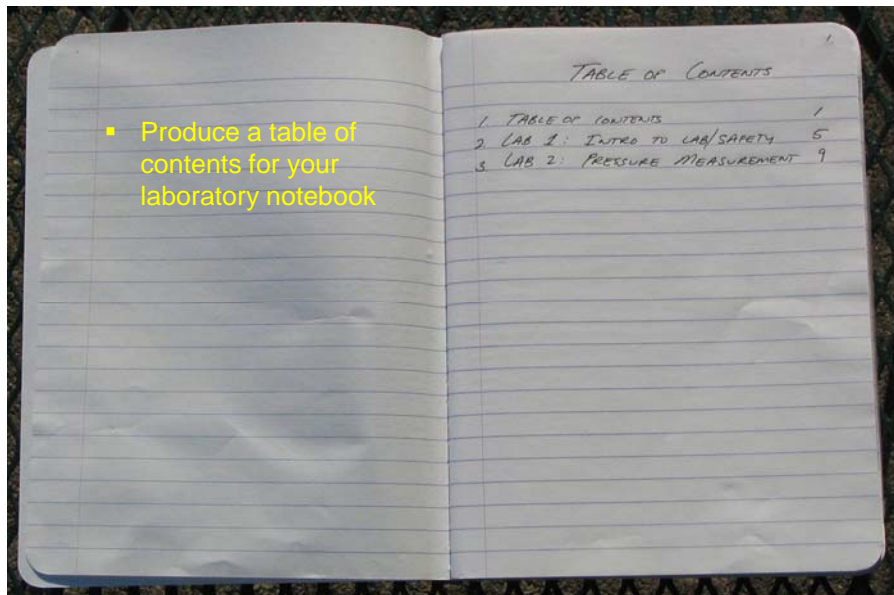 ▪ Produce a table of
contents for your
laboratory notebook
1.
TABLE OF CONTENTS
1. TABLE OF CONTENTS 1
2 LAB 1: INTRO TO LAB/SAFETY 5
3. LAB 2: PRESSURE MEASUREMENT 9